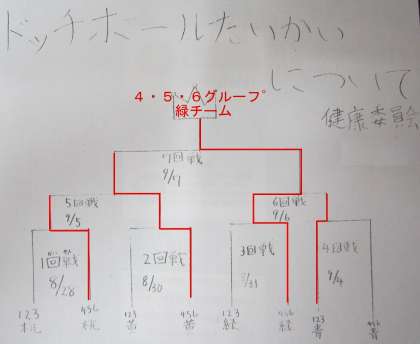 ドッチボールたいかい
について
4・5・6グループ
緑チーム
健康委員会
7回戦
9/7
5回戦
9/5
6回戦
9/6
1回戦
8/28
2回戦
8/30
3回戦
8/31
4回戦
9/4
123 456 123 456 123 456 123 456
桃 桃 黄 黄 緑 緑 青 青